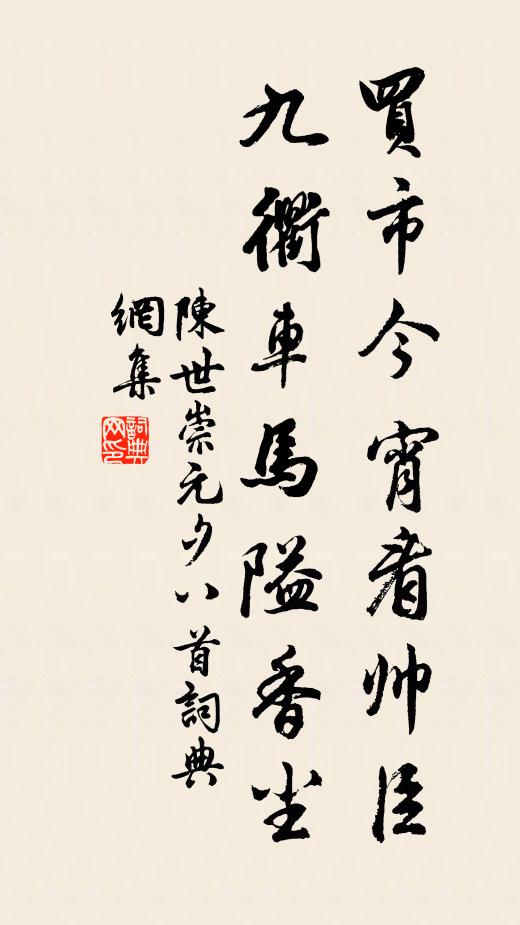 買市今宵看帅臣
九衢車馬隘香尘
陳世崇元夕八首詞典
網集
詞典
网印